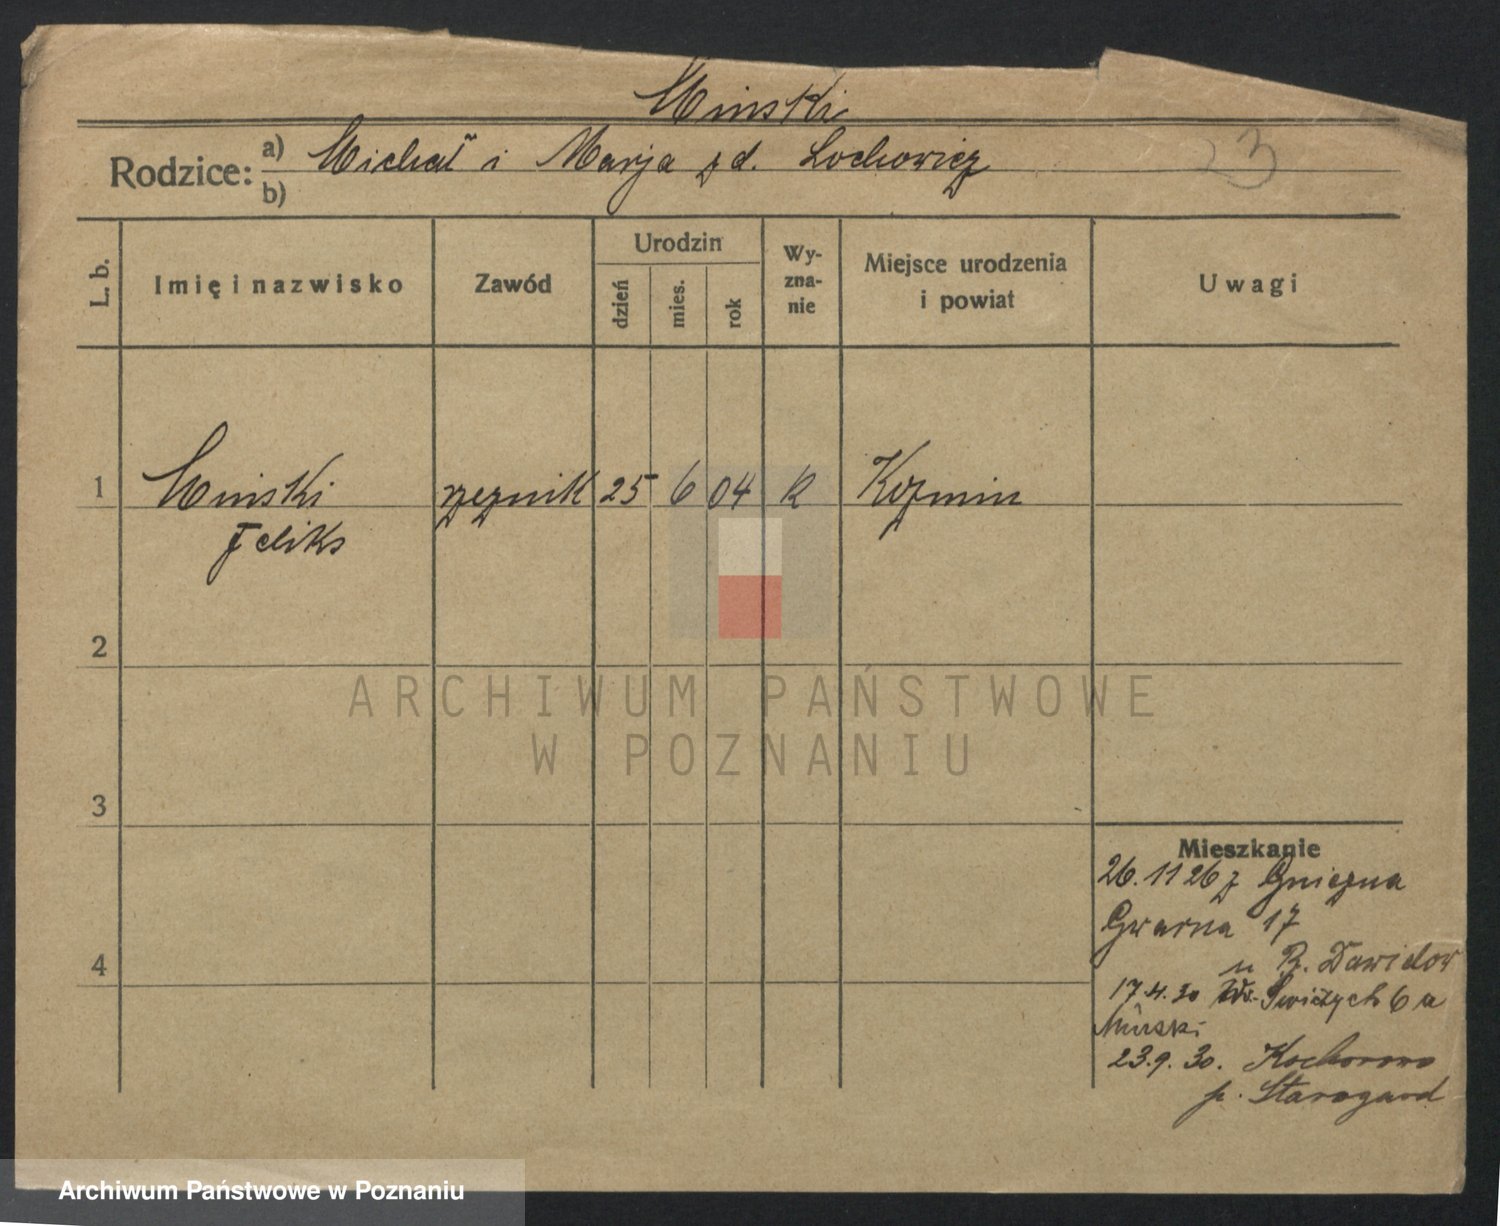 Minski
23
Rodzice: a) Michał i Marja z d. Lochowicz
b)
L. b.
Imię i nazwisko
Zawód
Urodzin
dzień
mies.
rok
Wy-
zna-
nie
Miejsce urodzenia
i powiat
Uwagi
1 Minski rzeznik 25 6 04 R Kozmin
Feliks
2
3
4
Mieszkanie
26. 11 26 z Gniezna
Gwarna 17
u R. Dawidow
17.4.30 6 u
Minski
23.9.30. Kochorowo
p. Starogard
ARCHIWUM PAŃSTWOWE
W POZNANIU
Archiwum Państwowe w Poznaniu